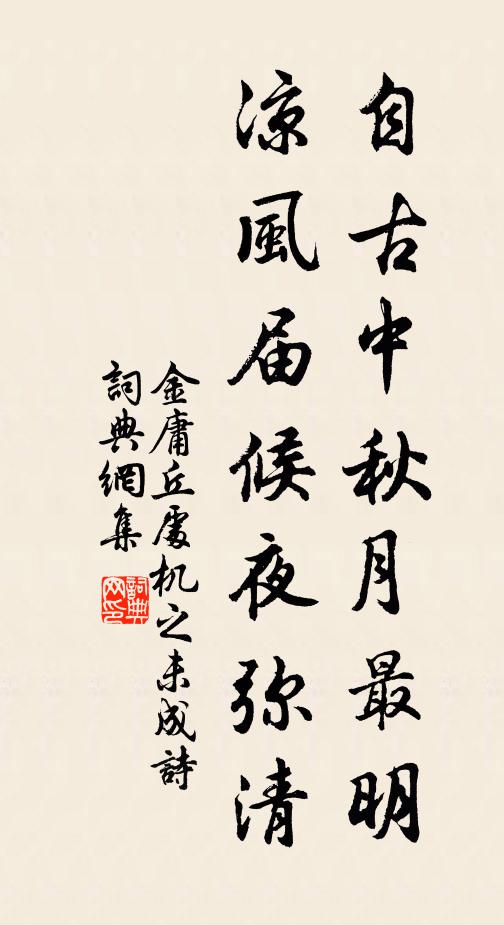 自古中秋月最明
凉風届候夜弥清
金庸丘處机之未成詩
詞典網集
詞典
网印